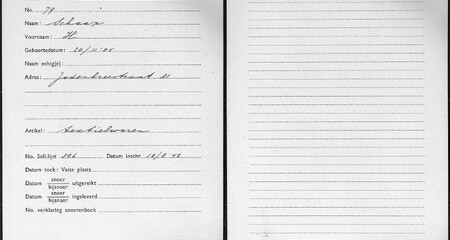 No. 79
Naam: Schaap
Voornaam: H.
Geboortedatum: 20/11'05
Naam echtg(e):
Adres: Jodenbreestraat 81
Artikel: textielwaren
No. Soll.lijst 296 Datum inschr. 10/8 42
Datum toek: Vaste plaats
Datum snoer/bijsnoer uitgereikt
Datum snoer/bijsnoer ingeleverd
No. verklaring snoerenboek